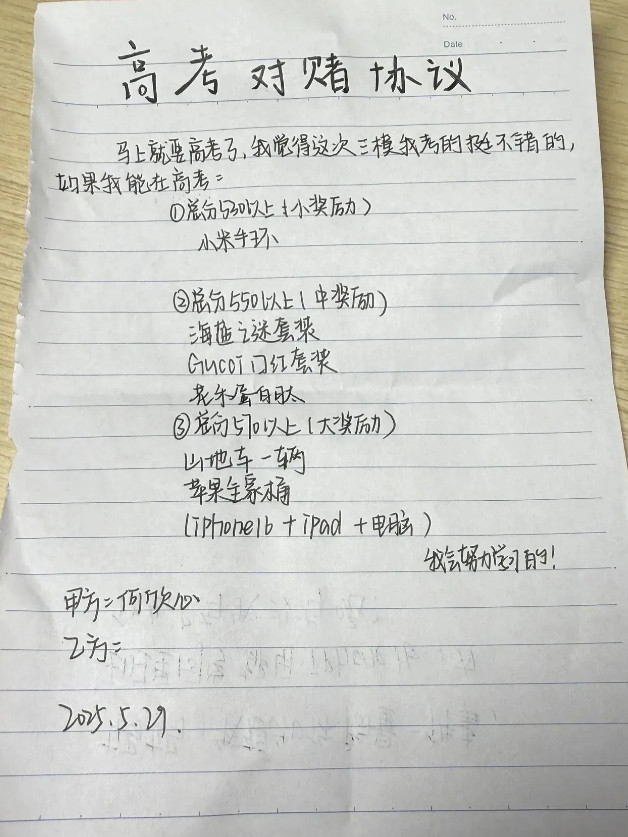 No.
Date
高考对赌协议
马上就要高考了,我觉得这次三模我考的挺不错的,
如果我能在高考:
①总分530以上(小奖励)
小米手环
②总分550以上(中奖励)
海蓝之谜套装
Gucci口红套装
胶原蛋白肽
③总分570以上(大奖励)
山地车一辆
苹果全家桶
(iphone16+ipad+电脑)
我会努力学习的!
甲方:何欣心
乙方:
2025.5.29.